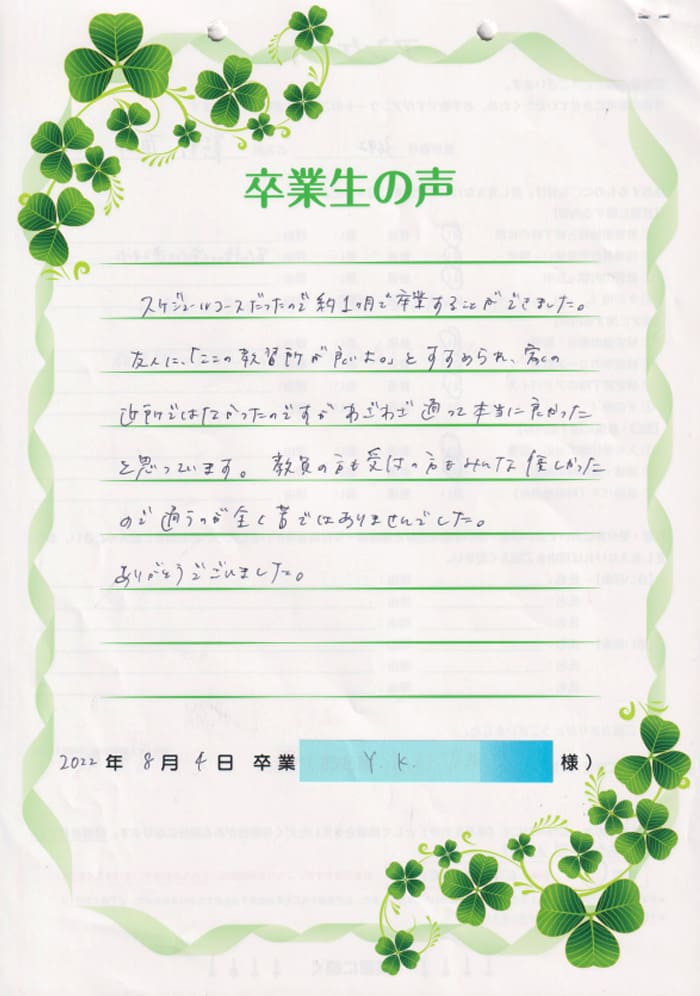 卒業生の声
スケジュールコースだったので約1ヶ月で卒業することができました。
友人に、「ここの教習所が良いよ。」とすすめられ、家の
近所ではなかったのですがわざわざ通って本当に良かった
と思っています。教員の方も受付の方もみんな優しかった
ので通うのが全く苦ではありませんでした。
ありがとうございました。
2022年 8月 4日 卒業 Y.K. 様)